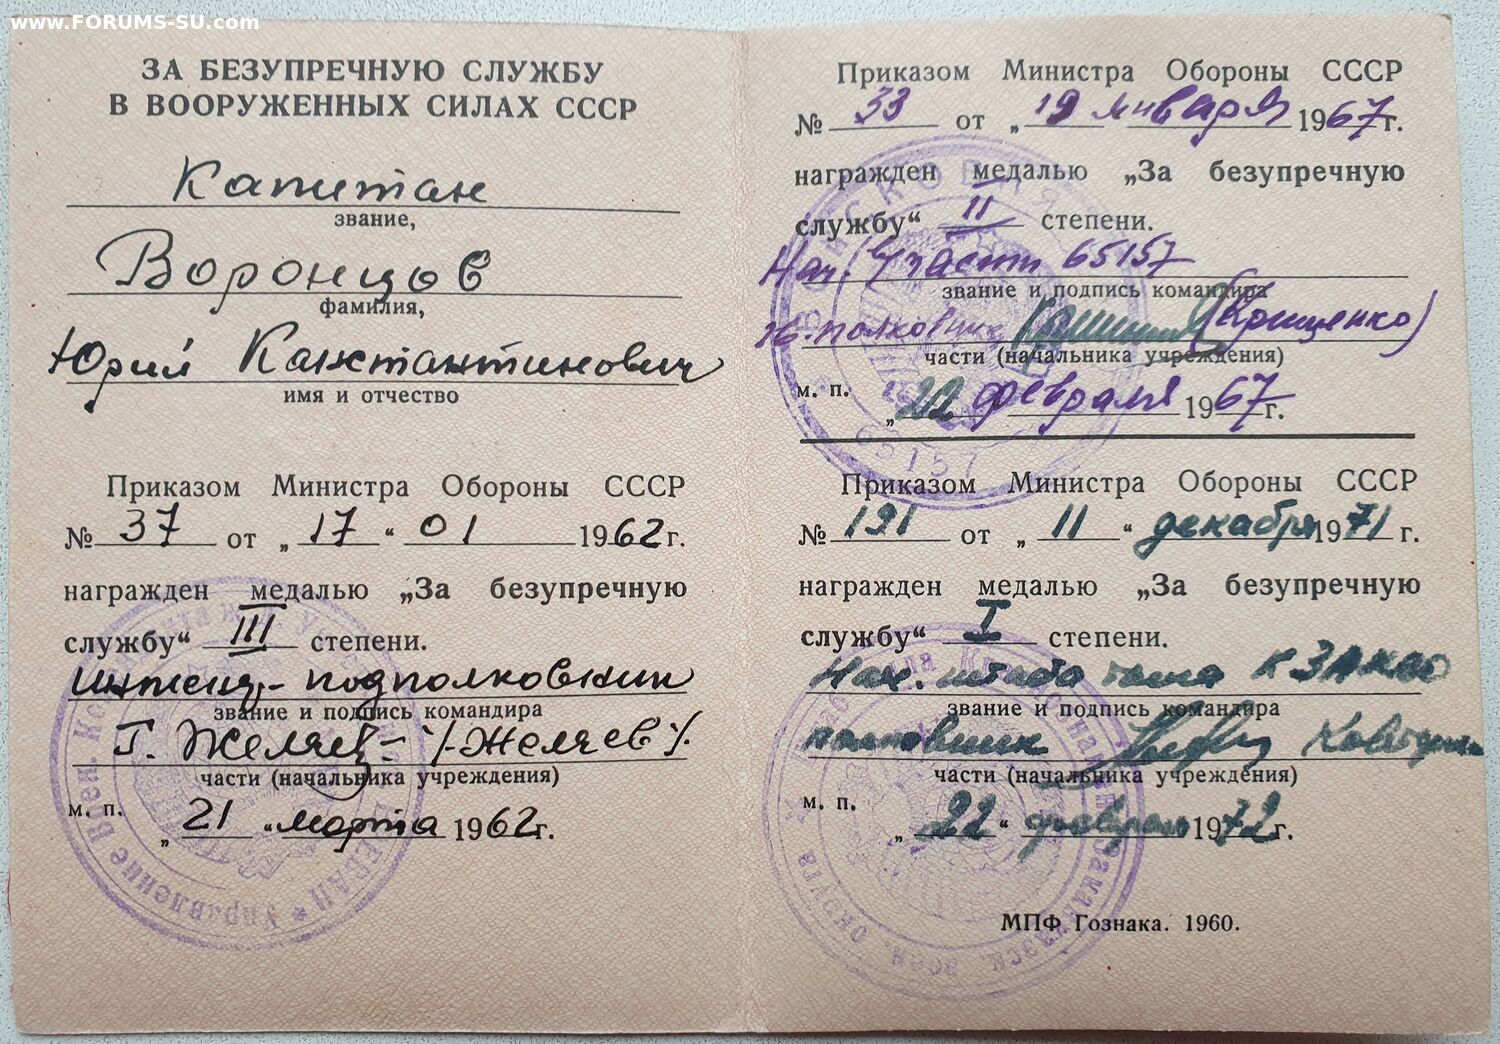 www.FORUMS-SU.com
ЗА БЕЗУПРЕЧНУЮ СЛУЖБУ
В ВООРУЖЕННЫХ СИЛАХ СССР
Капитан
звание,
Воронцов
фамилия,
Юрий Канстантинович
имя и отчество
Приказом Министра Обороны СССР
№ 37 от „ 17 “ 01 1962 г.
награжден медалью „За безупречную
службу“ III степени.
Инженер-подполковник
звание и подпись командира
Г. Желяев - /-Желяев/.
части (начальника учреждения)
м. п.
„ 21 “ марта 1962 г.
Приказом Министра Обороны СССР
№ 33 от „ 19 января 1967 г.
награжден медалью „За безупречную
службу“ II степени.
Нач. в/части 65157
звание и подпись командира
полковник (Крищенко)
части (начальника учреждения)
м. п.
„ 22 февраля 1967 г.
65157
Приказом Министра Обороны СССР
№ 191 от „ 11 “ декабря 1971 г.
награжден медалью „За безупречную
службу“ I степени.
Нач. штаба тыла КЗАКВО
звание и подпись командира
полковник
части (начальника учреждения)
м. п.
„ 22 “ февраля 1972 г.
МПФ Гознака. 1960.